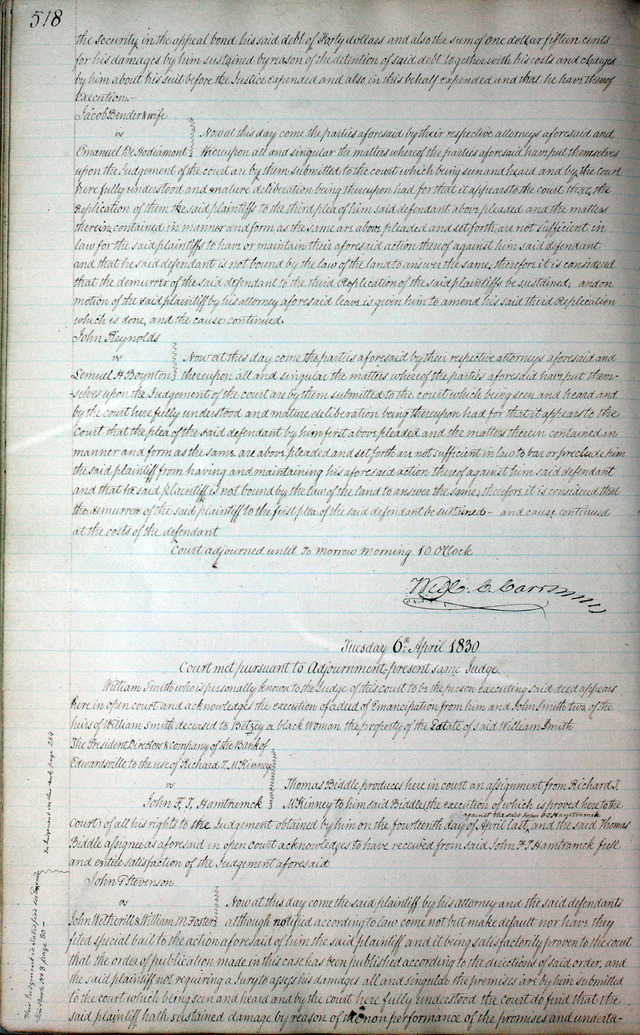 518
the security in the appeal bond his said debt of Forty dollars and also the sum of one dollar fifteen cents
for his damages by him sustained by reason of the detention of said debt together with his costs and charges
by him about his suit before the Justice expended and also in this behalf expended and that he have thereof
execution.
Jacob Bender & wife
vs Now at this day come the parties aforesaid by their respective attorneys aforesaid and
Emanuel De Hodiamont thereupon all and singular the matters whereof the parties aforesaid have put themselves
upon the Judgement of the court are by them submitted to the court which being seen and heard and by the court
here fully understood and mature deliberation being thereupon had for that it appears to the court that the
Replication of them the said plaintiffs to the third plea of him said defendant above pleaded and the matters
therein contained in manner and form as the same are above pleaded and set forth are not sufficient in
law for the said plaintiffs to have or maintain their aforesaid action thereof against him said defendant
and that he said defendant is not bound by the law of the land to answer the same, therefore it is considered
that the demurrer of the said defendant to the third Replication of the said plaintiffs be sustained, and on
motion of the said plaintiff by his attorney aforesaid leave is given him to amend his said third Replication
which is done, and the cause continued.
John Reynolds
vs Now at this day come the parties aforesaid by their respective attorneys aforesaid and
Lemuel H. Boynton thereupon all and singular the matters whereof the parties aforesaid have put them-
-selves upon the Judgement of the court are by them submitted to the court which being seen and heard and
by the court here fully understood and mature deliberation being thereupon had for that it appears to the
Court that the plea of the said defendant by him first above pleaded and the matters therein contained in
manner and form as the same are above pleaded and set forth are not sufficient in law to bar or preclude him
the said plaintiff from having and maintaining his aforesaid action thereof against him said defendant
and that he said plaintiff is not bound by the law of the land to answer the same, therefore it is considered that
the demurrer of the said plaintiff to the first plea of the said defendant be sustained – and cause continued
at the costs of the defendant
Court adjourned until To morrow morning 10 O'Clock
Wm. C. Carr
Tuesday 6th April 1830
Court met pursuant to Adjournment present same Judge.
William Smith who is personally known to the Judge of this court to be the person executing said deed appears
here in open court and acknowledges the execution of a deed of Emancipation from him and John Smith two of the
heirs of William Smith deceased to Betzey a black Woman the property of the Estate of said William Smith
The President Directors & company of the Bank of
Edwardsville to the use of Richard T. McKinney
vs Thomas Biddle produces here in court an assignment from Richard T.
John F. I. Hamtramck McKinney to him said Biddle, the execution of which is proved here to the
against the said John F. I. Hamtramck
Court, of all his rights to the Judgement obtained by him on the fourteenth day of April last, and the said Thomas
Biddle assignee as aforesaid in open court acknowledges to have received from said John F. I. Hamtramck full
and entire satisfaction of the Judgement aforesaid
John T. Stevenson
vs Now at this day come the said plaintiff by his attorney and the said defendants
John Wetherill & William M. Foster although notified according to law come not but make default nor have they
filed special bail to the action aforesaid of him the said plaintiff and it being satisfactorily proven to the court
that the order of publication made in this case has been published according to the directions of said order, and
the said plaintiff not requiring a Jury to assess his damages all and singular the premises are by him submitted
to the court which being seen and heard and by the court here fully understood the court do find that the
said plaintiff hath sustained damage by reason of the non performance of the promises and underta-